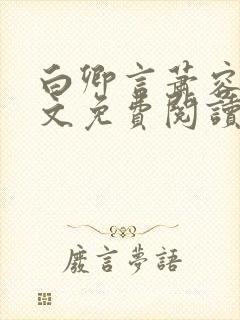 白卿言蕭容
文免費閱讀
廢言夢語